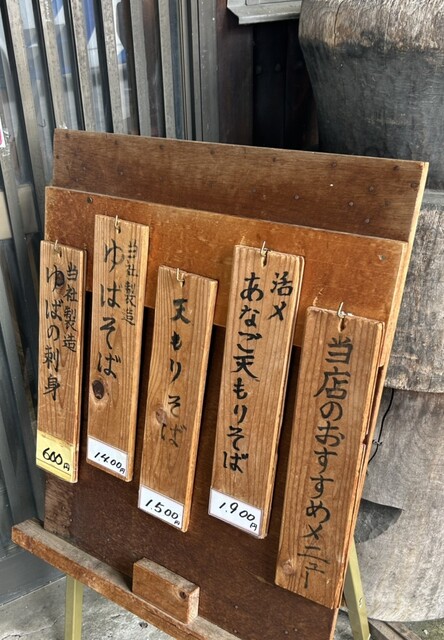 当店のおすすめメニュー
活〆
あなご天もりそば
1.900円
天もりそば
1.500円
当社製造
ゆばそば
1400円
当社製造
ゆばの刺身
600円